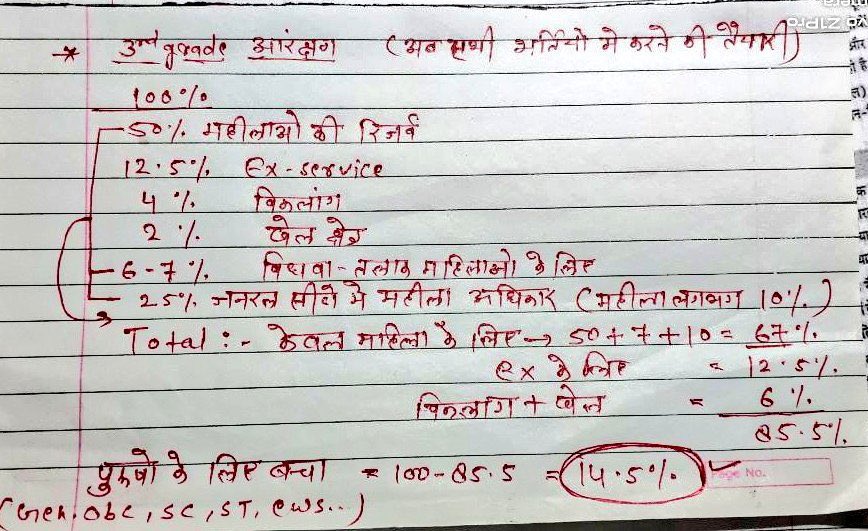 * 3rd grade आरक्षण (अब सभी भर्तियो मे करने की तैयारी)
100%
50% महीलाओ की रिजर्व
12.5% Ex-service
4% विकलांग
2% खेल क्षेत्र
6-7% विधवा-तलाक महिलाओ के लिए
25% जनरल सीटो मे महीला अधिकार (महीला लगभग 10%)
Total:- केवल महिला के लिए → 50+7+10= 67%
ex के लिए = 12.5%
विकलांग + खेल = 6%
85.5%
पुरुषो के लिए बच्चा = 100-85.5 = 14.5%
Page No.
(Gen. obc, sc, ST, ews...)